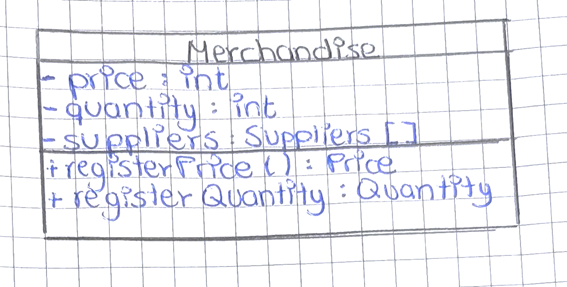 Merchandise
- price : int
- quantity : int
- suppliers : Suppliers []
+ registerPrice () : Price
+ register Quantity : Quantity